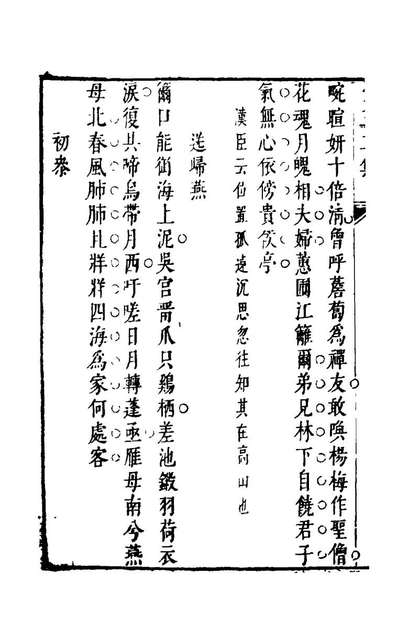 啶暄妍十倍淸曾呼薝蔔爲禪友敢喚楊梅作聖僧
花魂月魄相夫婦蕙圃江籬爾弟兄林下自饒君子
氣無心依傍貴侯亭
漢臣云位置孤遠沉思忽往知其在高山也
送歸燕
爾口能銜海上泥吳宮 爪只鷄栖差池鎩羽荷衣
淚復共啼烏帶月西吁嗟日月轉蓬亟雁毋南兮燕
毋北春風肺肺且牂牂四海爲家何處客
初冬